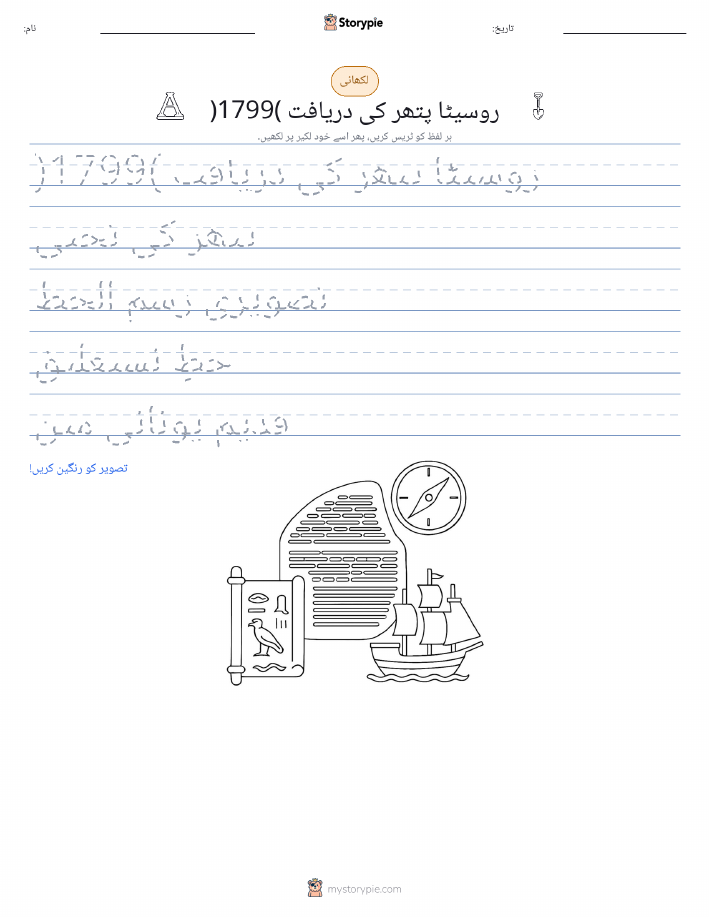 نام:
Storypie
تاریخ:
لکھائی
روسیٹا پتھر کی دریافت )1799(
ہر لفظ کو ٹریس کریں، پھر اسے خود لکیر پر لکھیں۔
روسیٹا پتھر کی دریافت )1799(
پتھر کی تختی
تصویری رسم الخط
خط نستعلیق
قدیم یونانی متن
تصویر کو رنگین کریں!
mystorypie.com